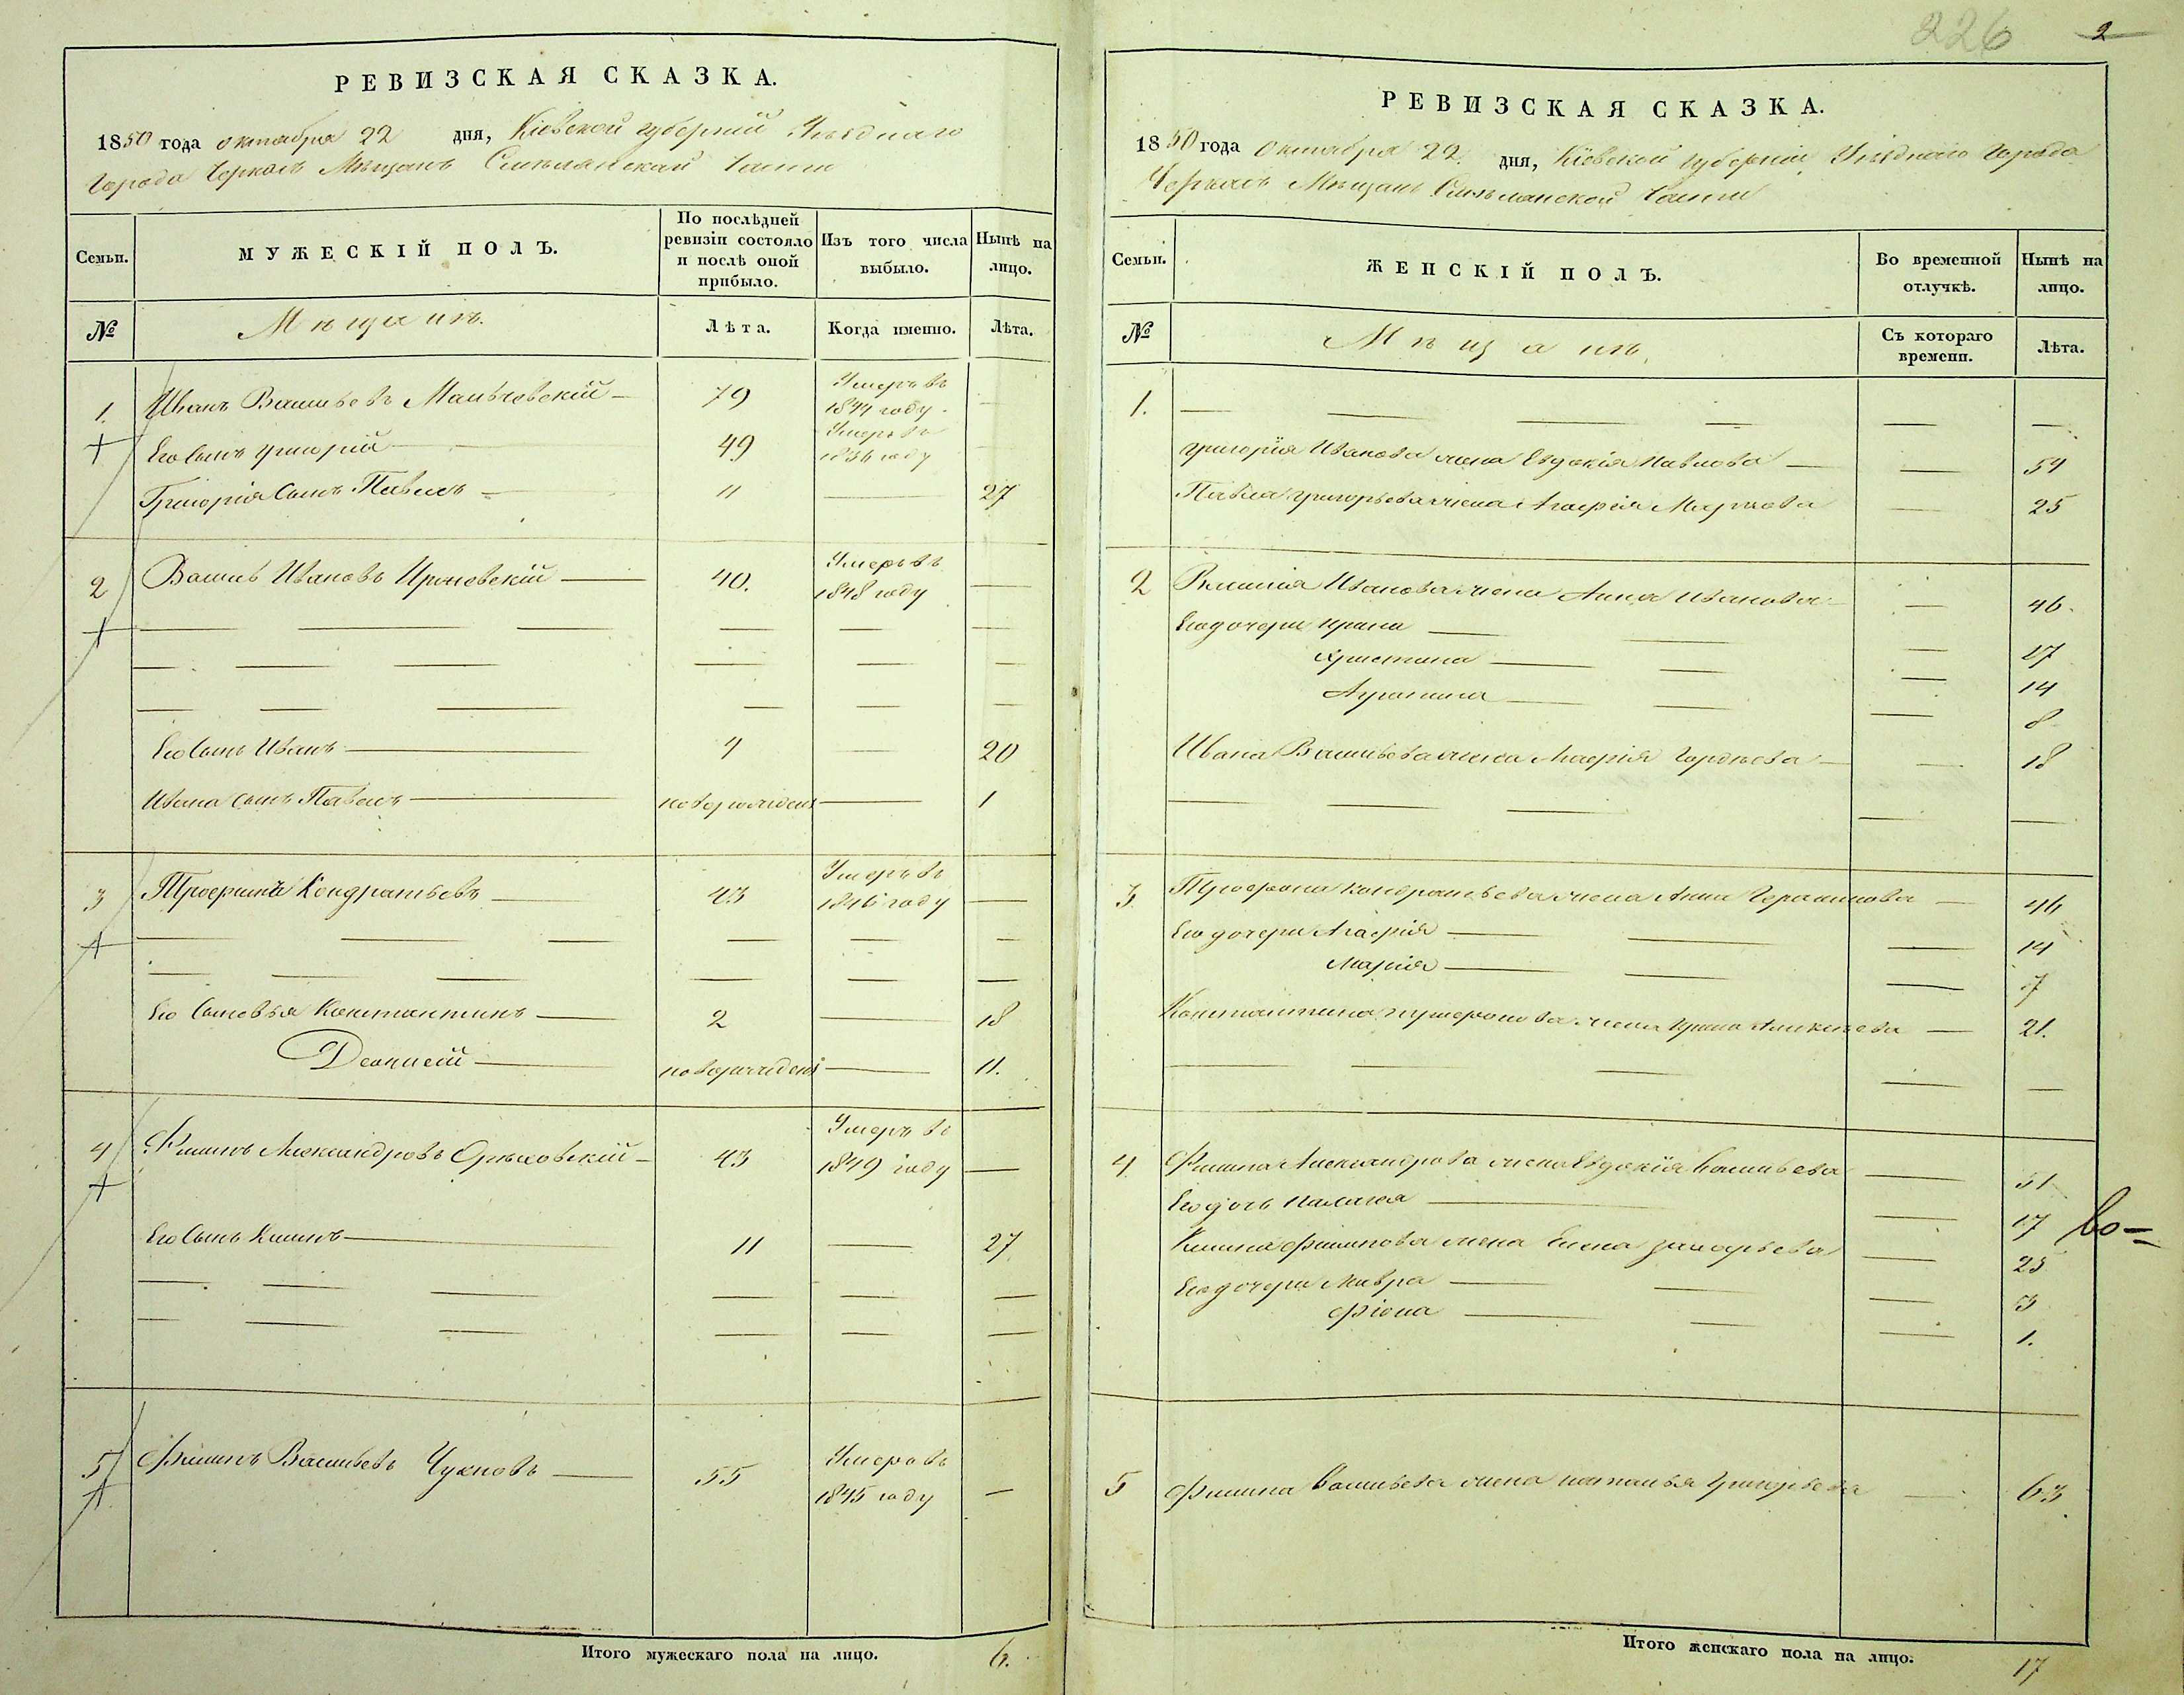 РЕВИЗСКАЯ СКАЗКА.
1850 года октября 22 дня, Кіевской губерніи Уѣзднаго
Города Черкасъ Мѣщанъ Смѣлянской Части
Семьи.
МУЖЕСКІЙ ПОЛЪ.
По послѣдней ревизіи состояло и послѣ оной прибыло.
Изъ того числа выбыло.
Нынѣ на лицо.
№
Мѣщанъ.
Лѣта.
Когда именно.
Лѣта.
1. Иванъ Васильевъ Мальчевскій 79 Умеръ въ 1844 году
Его сынъ Григорій 49 Умеръ въ 1836 году
Григорія Сынъ Павелъ 11 27
2 Василь Ивановъ 40. Умеръ въ 1848 году
Его Сынъ Иванъ 4 20
Ивана сынъ Павелъ новорожденъ 1
3 Трофимъ Кондратьевъ 43 Умеръ въ 1846 году
Его Сыновья Константинъ 2 18
Деонисій новорожденъ 11.
4 Филипъ Александровъ Орѣховскій 43 Умеръ въ 1849 году
Его Сынъ Климъ 11 27
5 Филипъ Васильевъ 55 Умеръ въ 1845 году
Итого мужескаго пола на лицо. 6.
226 2
РЕВИЗСКАЯ СКАЗКА.
1850 года Октября 22 дня, Кіевской губерніи, Уѣзднаго Города
Черкасъ Мѣщанъ Смѣлянской Части
Семьи.
ЖЕНСКІЙ ПОЛЪ.
Во временной отлучкѣ.
Нынѣ на лицо.
№
Мѣщанъ.
Съ котораго времени.
Лѣта.
1.
Григорія Иванова жена Евдокія Павлова 54
Павла Григорьева жена Агафія Маркова 25
2 Василія Иванова жена Анна Иванова 46
Его дочери Ирина 17
Христина 14
8
Ивана Васильева жена Агафія Гордѣева 18
3 Трофима Кондратьева жена Анна Герасимова 46
Его дочери Агафія 14
Марія 7
Константина Трофимова жена 21.
4. Филипа Александрова жена Евдокія Васильева 51
Его дочь Палажка 17
Клима Филипова жена Елена Захарьева 25
Его дочери Мавра 3
Фіона 1.
во-
5 Филипа Васильева жена Наталья Григорьева 63
Итого женскаго пола на лицо. 17